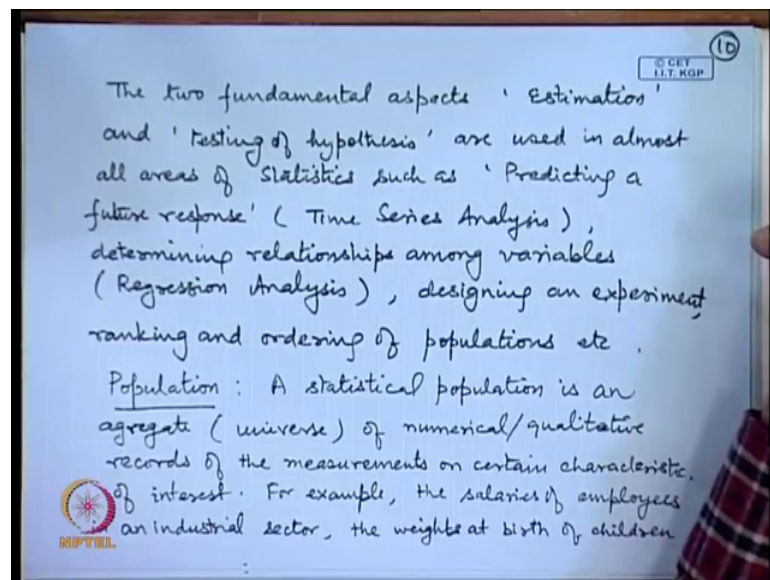 10
© CET
I.I.T. KGP
The two fundamental aspects 'Estimation'
and 'testing of hypothesis' are used in almost
all areas of Statistics such as 'Predicting a
future response' (Time Series Analysis),
determining relationships among variables
(Regression Analysis), designing an experiment,
ranking and ordering of populations etc.
Population : A statistical population is an
agregate (universe) of numerical/qualitative
records of the measurements on certain characteristic.
of interest. For example, the salaries of employees
in an industrial sector, the weights at birth of children
NPTEL